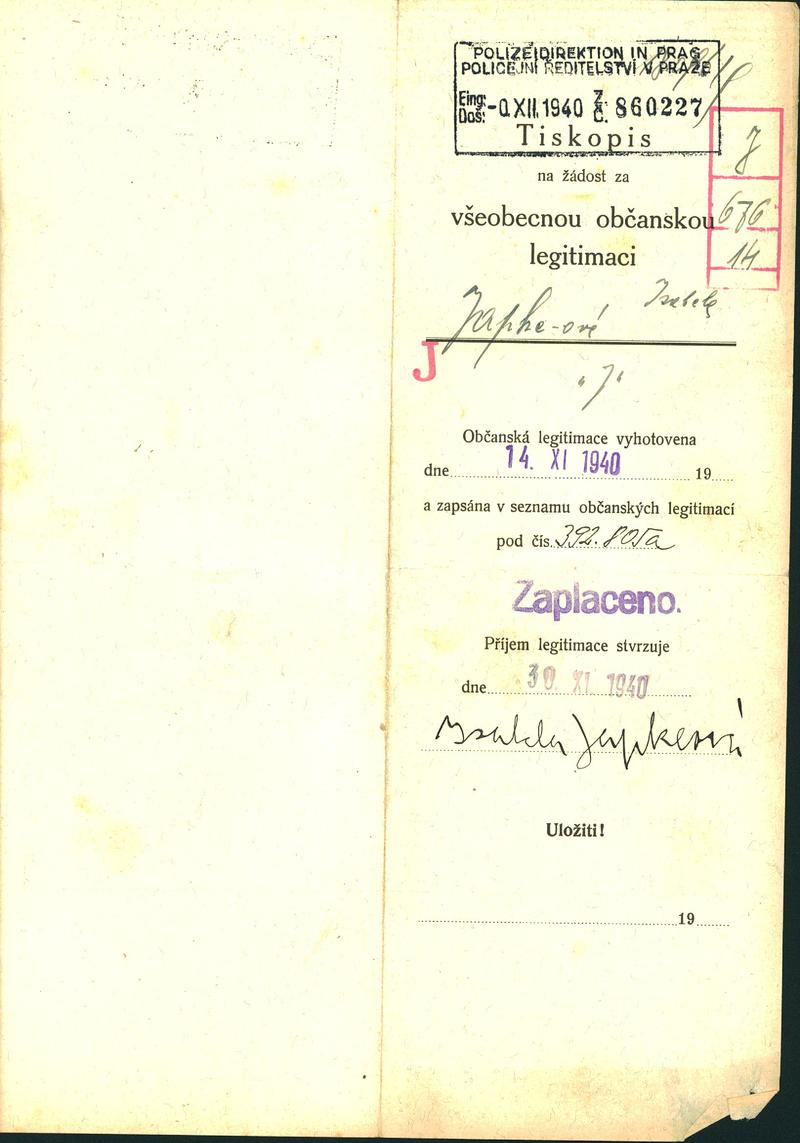 POLIZEIDIREKTION IN PRAG
POLICEJNÍ ŘEDITELSTVÍ V PRAZE
Eing: Doš: -0.XII.1940 Z. Č. 860227
Tiskopis
J
na žádost za
676
všeobecnou občanskou
14
legitimaci
Isabela
Japke-ové
J
"J"
Občanská legitimace vyhotovena
dne 14. XI 1940 19
a zapsána v seznamu občanských legitimací
pod čís. 392.805a
Zaplaceno.
Příjem legitimace stvrzuje
dne 30 XI 1940
Isabela Japkeová
Uložiti!
19